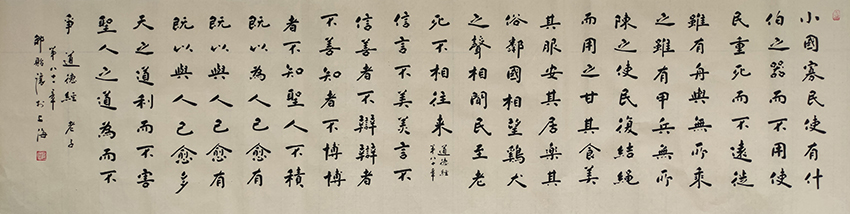 小國寡民使有什
伯之器而不用使
民重死而不遠徙
雖有舟輿無所乘
之雖有甲兵無所
陳之使民復結繩
而用之甘其食美
其服安其居樂其
俗鄰國相望鷄犬
之聲相聞民至老
死不相往來 道德經
第八十章
信言不美美言不
信善者不辯辯者
不善知者不博博
者不知聖人不積
既以為人己愈有
既以與人己愈有
既以與人己愈多
天之道利而不害
聖人之道為而不
爭 道德經 老子
第八十一章
於上海